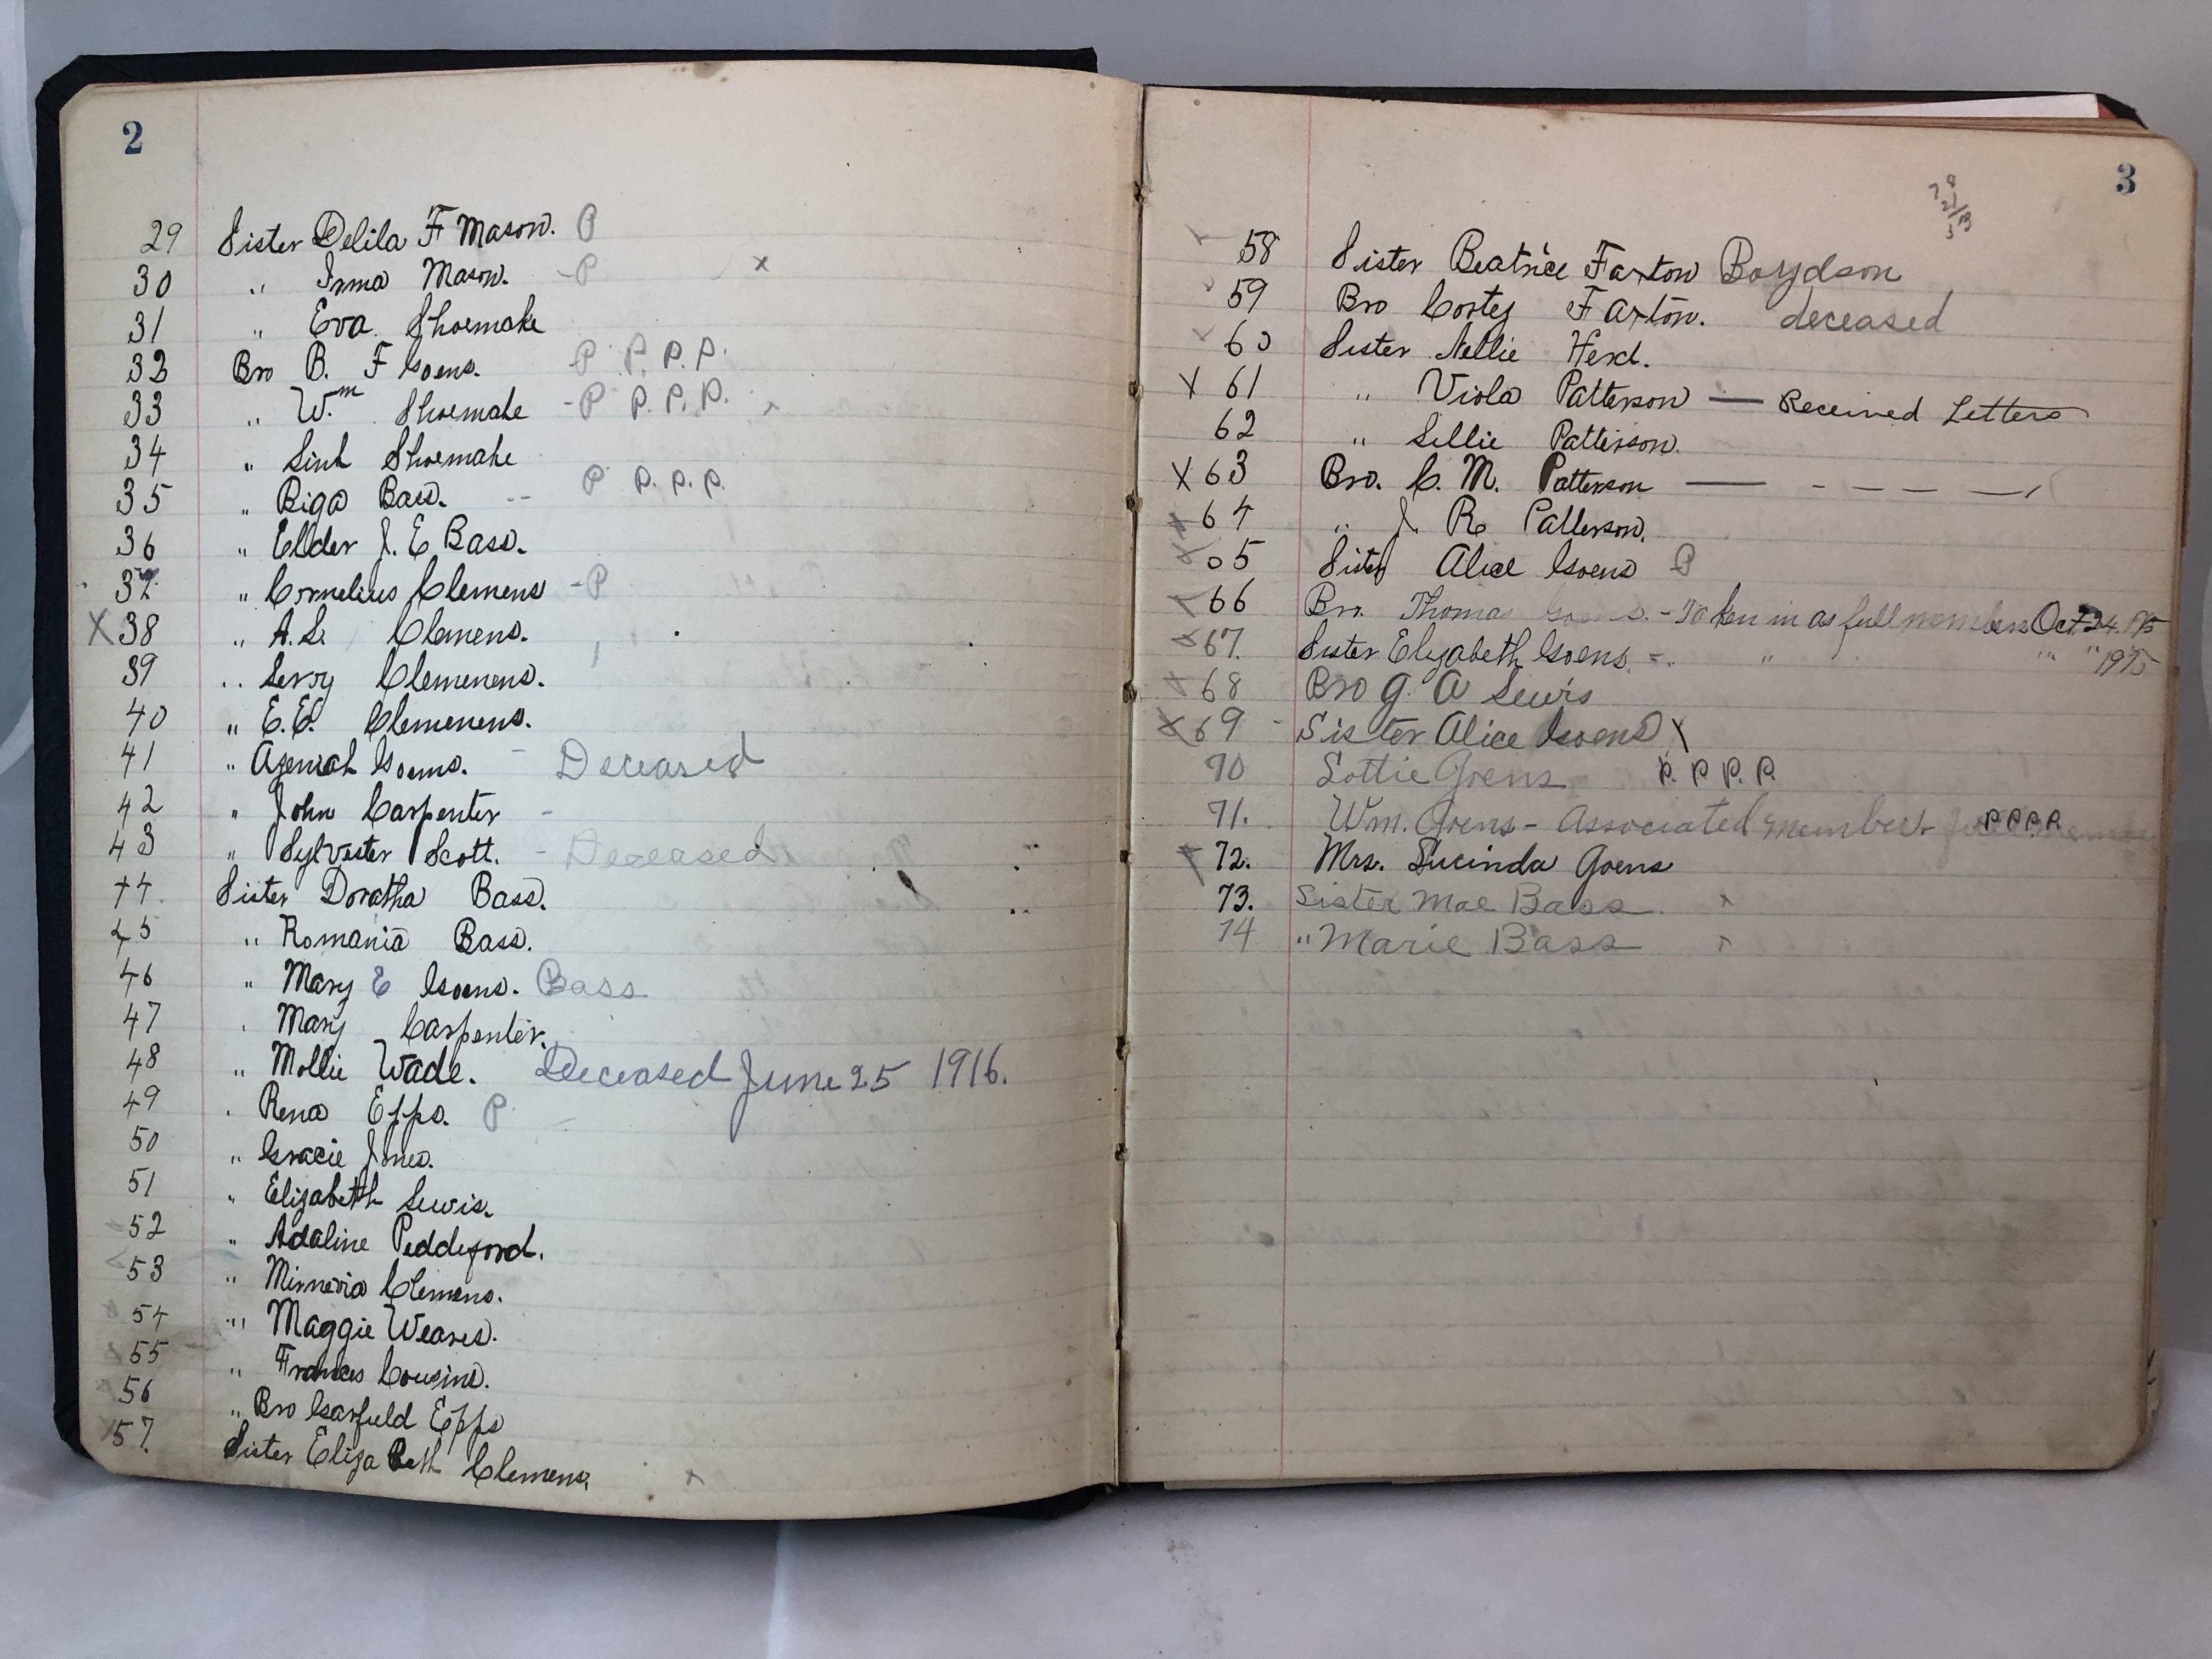 2
29 Sister Delila F Mason. P
30 " Irma Mason. - P x
31 " Eva Shoemake
32 Bro B. F Goens. P P. P. P.
33 " Wm Shoemake - P P. P. P. x
34 " Link Shoemake
35 " Riga Bass. -- P P. P. P.
36 " Elder J. E Bass.
37 " Cornelius Clemens - P
X 38 " A.L. Clemens.
39 " Leroy Clemenens.
40 " E.E. Clemenens.
41 " Azeriah Goens. - Deceased
42 " John Carpenter -
43 " Sylvester Scott. - Deceased
44 Sister Doratha Bass.
45 " Romania Bass.
46 " Mary E Goens. Bass
47 " Mary Carpenter.
48 " Mollie Wade. Deceased June 25 1916.
49 " Rena Epps. P
50 " Gracie Jones.
51 " Elizabeth Lewis.
52 " Adaline Peddeford.
53 " Minnevia Clemens.
54 " Maggie Weaver.
55 " Frances Cousins.
56 " Bro Garfield Epps
57. Sister Elizabeth Clemens. x
3
58 Sister Beatrice Faxton Boydson
59 Bro Cortez Faxton. deceased
60 Sister Nellie Herd.
X 61 " Viola Patterson — Received Letters
62 " Lillie Patterson.
X 63 Bro. C. M. Patterson — - - — —
x 64 " J. R. Patterson.
x 65 Sister Alice Goens P
x 66 Bro. Thomas Goens. - Taken in as full members Oct 24. 1915
x 67. Sister Elizabeth Goens - " " " 1915
x 68 Bro G. A Lewis
x 69 - Sister Alice Goens x
70 Lottie Goens P. P P. P.
71. Wm. Goens - Associated member P P P P
x 72. Mrs. Lucinda Goens
73. Sister Mae Bass x
74 " Marie Bass x